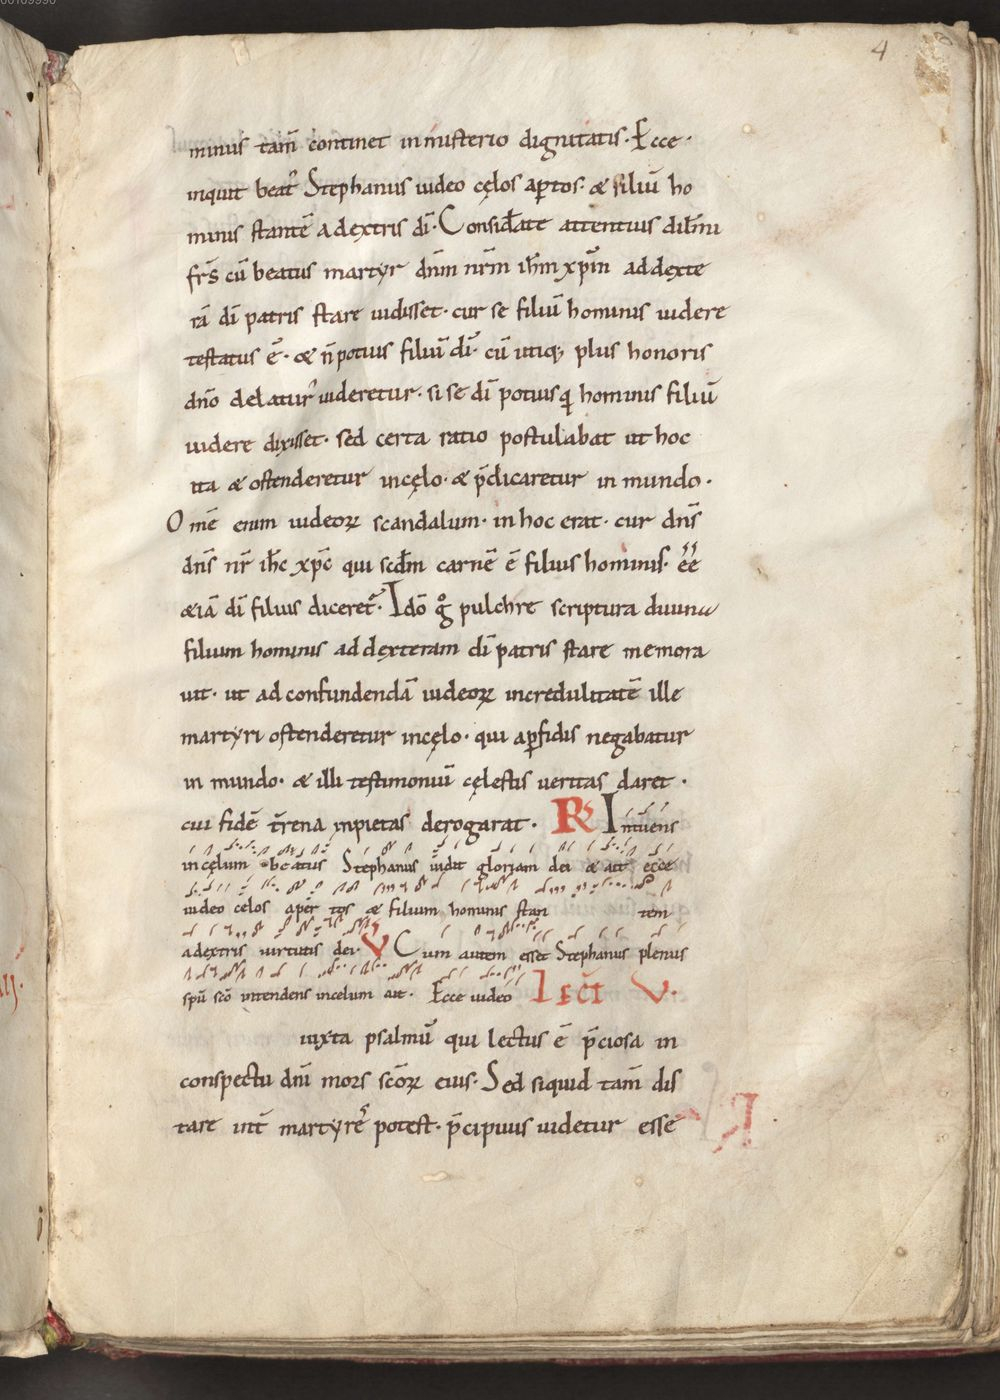 4
minus tam̅ continet in misterio dignitatis. Ecce.
inquit beat᷒ Stephanus uideo cęlos ap̱tos. & filiu̅ ho
minis stante̅ a dextris di̅. Considate attentius dil̅mi
fr̅s cu̅ beatus martyr dn̅m nr̅m ih̅m xp̅m ad dexte
ra̅ di̅ patris stare uidisset. cur se filiu̅ hominis uidere
testatus e̅. & n̅ potius filiu̅ di̅. cu̅ utiq; plus honoris
dn̅o delatur᷒ uideretur. si se di̅ potius q hominis filiu̅
uidere dixisset. sed certa ratio postulabat ut hoc
ita & ostenderetur in cęlo. & p̅dicaretur in mundo.
Om̅e enim iudeoꝝ scandalum. in hoc erat. cur dn̅s
dn̅s nr̅ ih̅c xp̅c qui scd̅m carne̅ e̅ filius hominis. e̅e̅
&ia̅ di̅ filius diceret᷒. Ido̅ gͦ pulchre scriptura diuina
filium hominis ad dexteram di̅ patris stare memora
uit. ut ad confundenda̅ iudeoꝝ incredulitate̅ ille
martyri ostenderetur in cęlo. qui a ꝑfidis negabatur
in mundo. & illi testimoniu̅ cęlestis ueritas daret.
cui fide̅ t̅rena inpietas derogarat. R Intuens
in cęlum beatus Stephanus uidit gloriam dei & ait ecce
uideo celos apertos & filium hominis stantem
a dextris uirtutis dei. V Cum autem esset Stephanus plenus
spu̅ sco̅ intendens in celum ait. Ecce uideo Lect̅ V.
iuxta psalmu̅ qui lectus e̅ p̅ciosa in
conspectu dn̅i mors sco̅ꝝ eius. Sed siquid tam̅ dis
tare int̅ martyre̅s potest. p̅cipuus uidetur esse